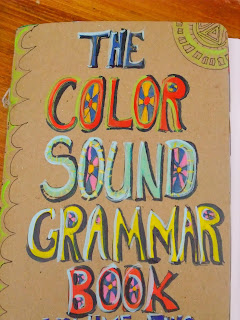 THE
COLOR
SOUND
GRAMMAR
BOOK